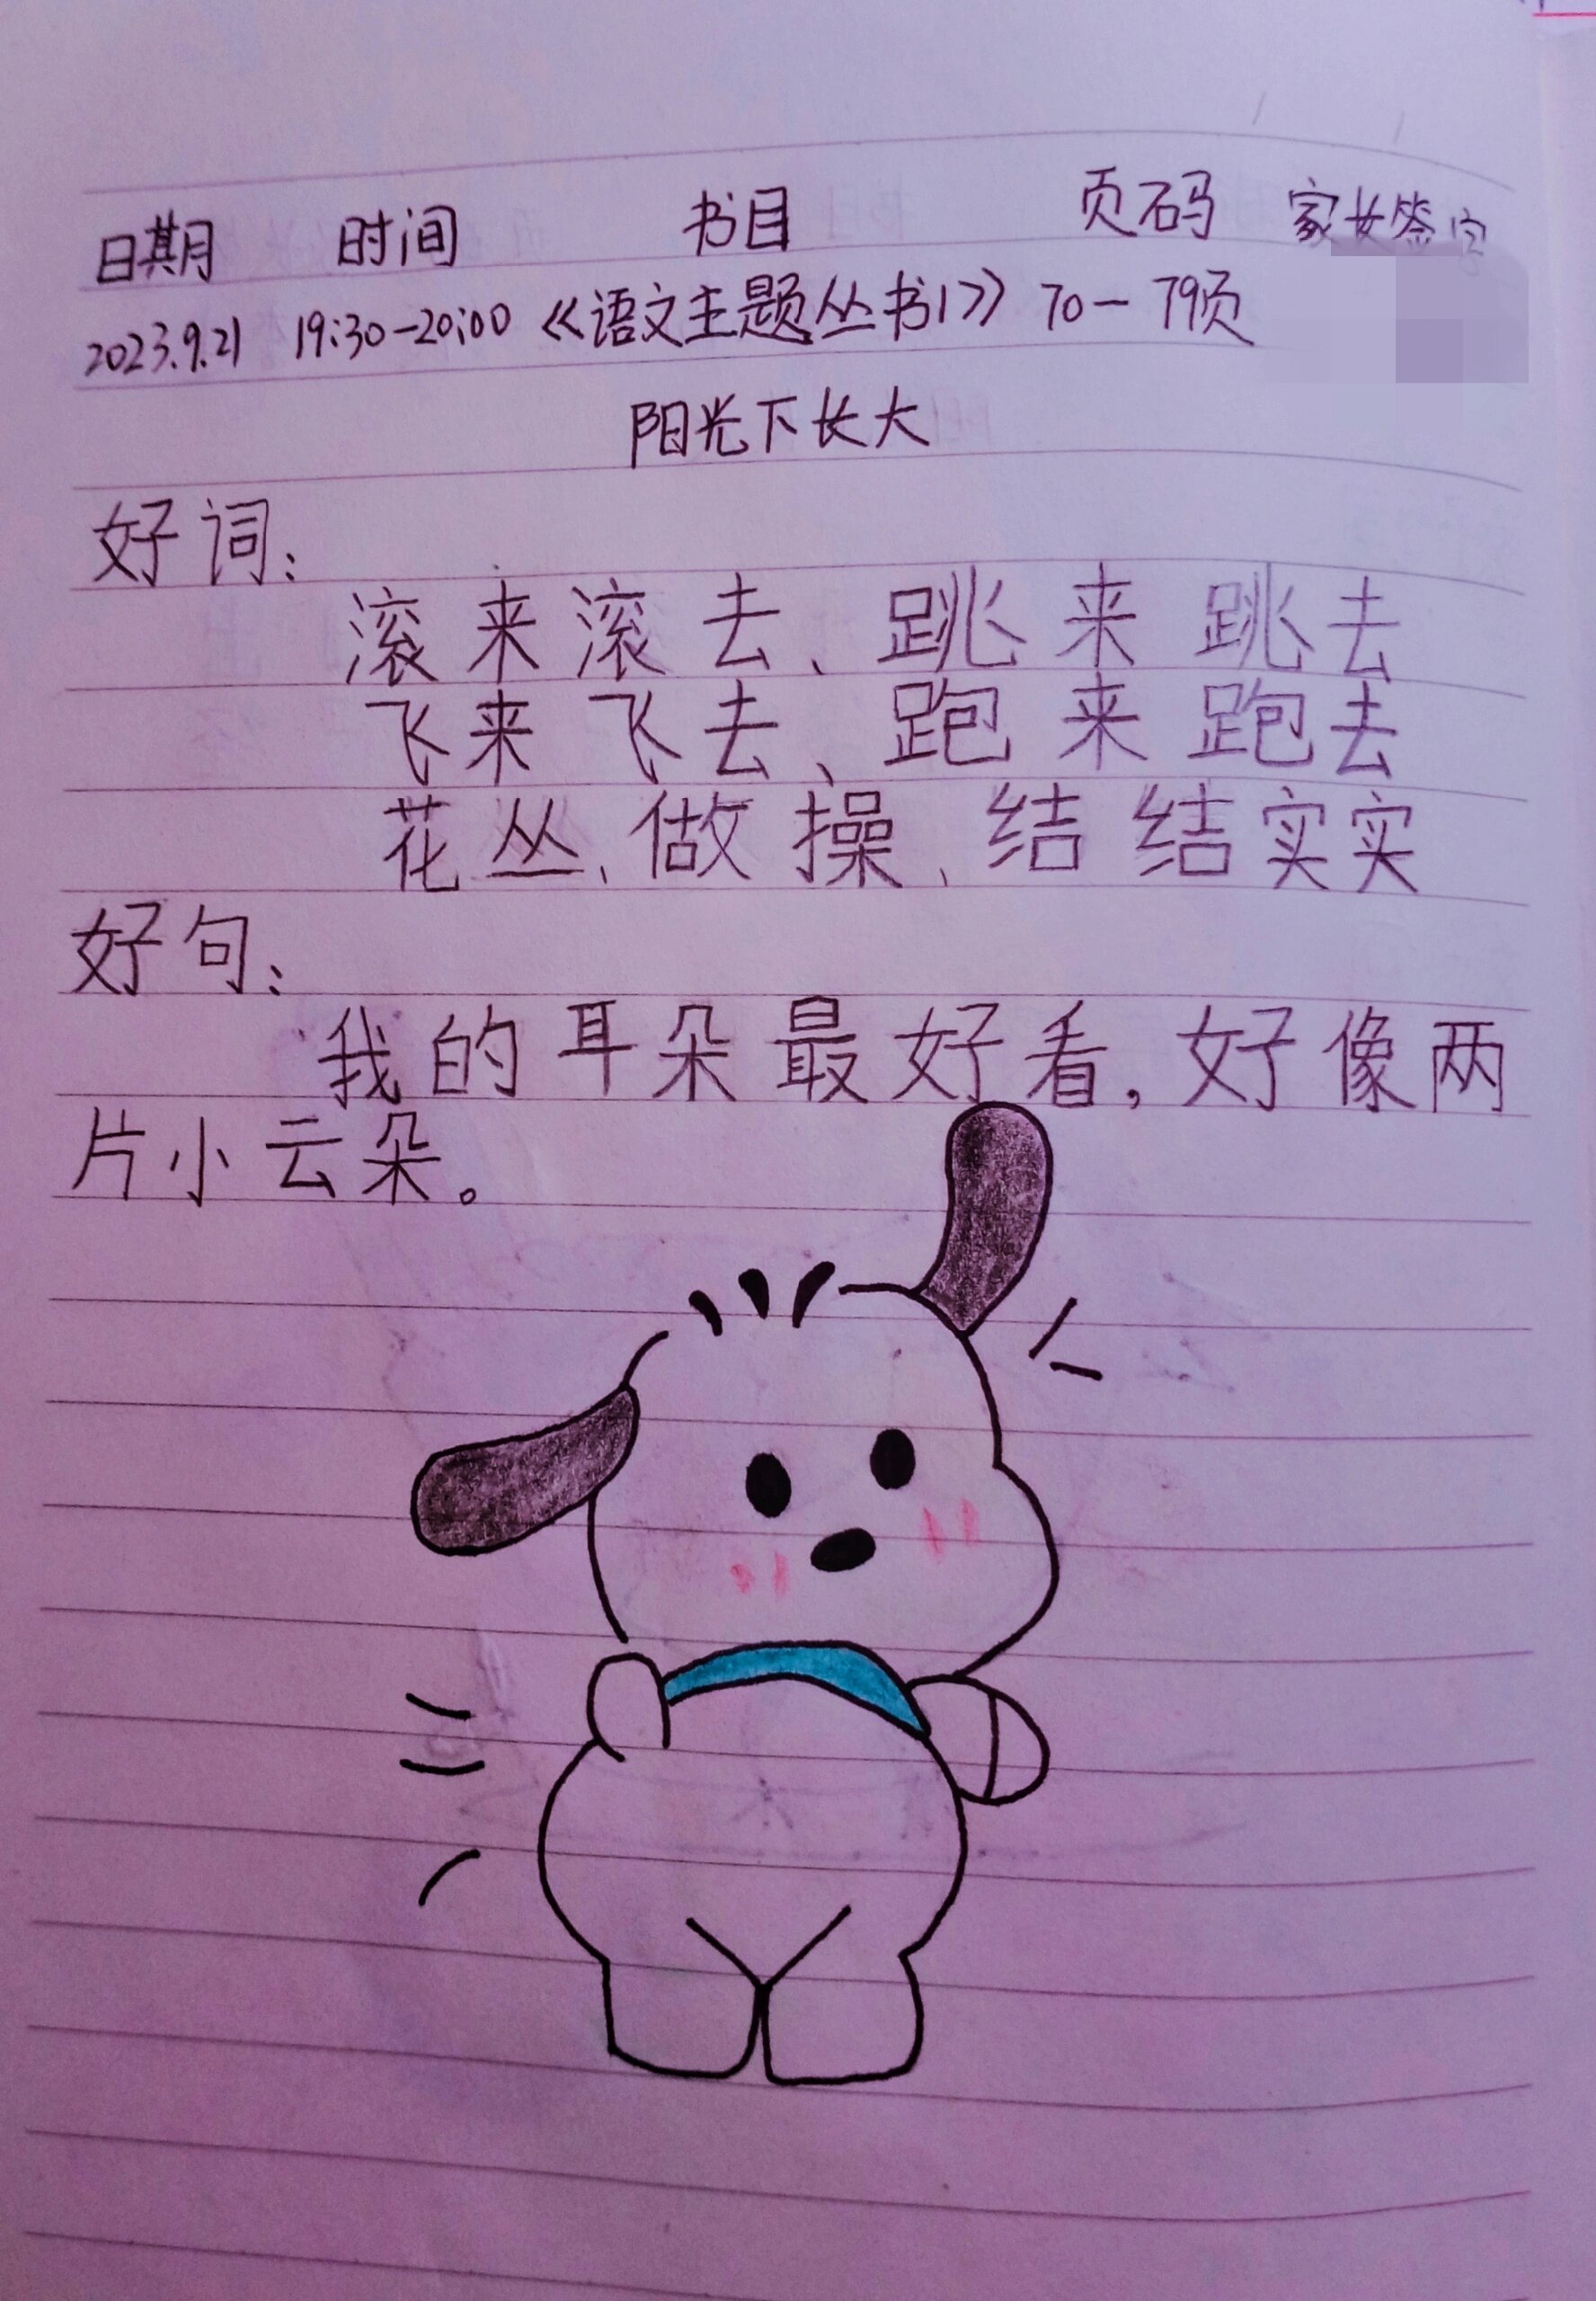 日期 时间 书目 页码 家长签字
2023.9.21 19:30-20:00 《语文主题丛书1》 70-79页
阳光下长大
好词：
滚来滚去、跳来跳去
飞来飞去、跑来跑去
花丛、做操、结结实实
好句：
我的耳朵最好看，好像两
片小云朵。